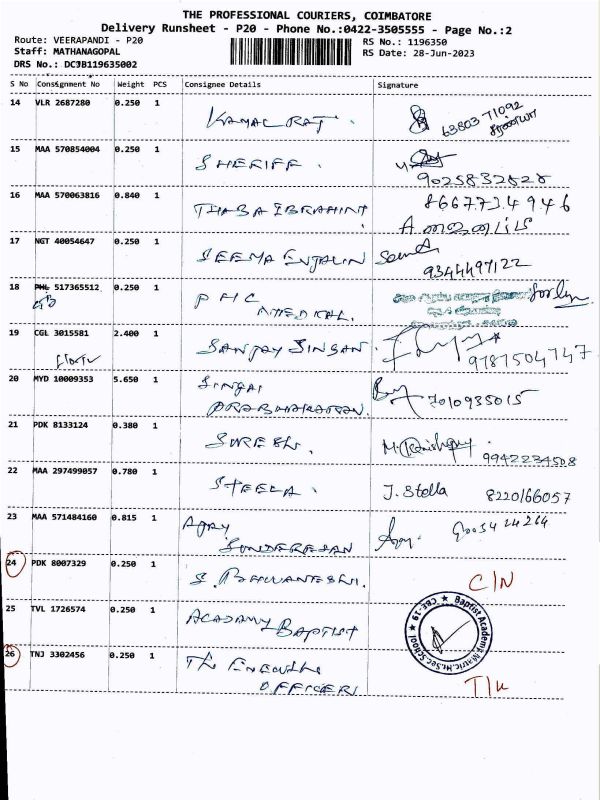 THE PROFESSIONAL COURIERS, COIMBATORE
Delivery Runsheet - P20 - Phone No.:0422-3505555 - Page No.:2
Route: VEERAPANDI - P20
Staff: MATHANAGOPAL
DRS No.: DCJB119635002
RS No.: 1196350
RS Date: 28-Jun-2023
S No Consignment No Weight PCS Consignee Details Signature
14 VLR 2687280 0.250 1 KAMAL RAJ. 63803 71092
15 MAA 570854004 0.250 1 SHERIFF. 9025832828
16 MAA 570063816 0.840 1 THABA IBRAHIM 8667734946
17 NGT 40054647 0.250 1 SEEMA ENJALIN 9344497122
18 PHL 517365512 0.250 1 PHC
MEDICAL.
19 CGL 3015581 2.400 1 SANJAY SINGAN. 9787504747
20 MYD 10009353 5.650 1 SINGAI 7010935015
PRABHAKARAN.
21 PDK 8133124 0.380 1 SURESH. 9942234508
22 MAA 297499057 0.780 1 STEELA. J. Stella 8220166057
23 MAA 571484160 0.815 1 AJAY
SUNDERESAN
24 PDK 8007329 0.250 1 C/N
25 TVL 1726574 0.250 1 ACADAMY
BAPTIST
Baptist Academy Matric.Hr.Sec School ★ CBE-19 ★
26 TNJ 3302456 0.250 1 THE
OFFICER